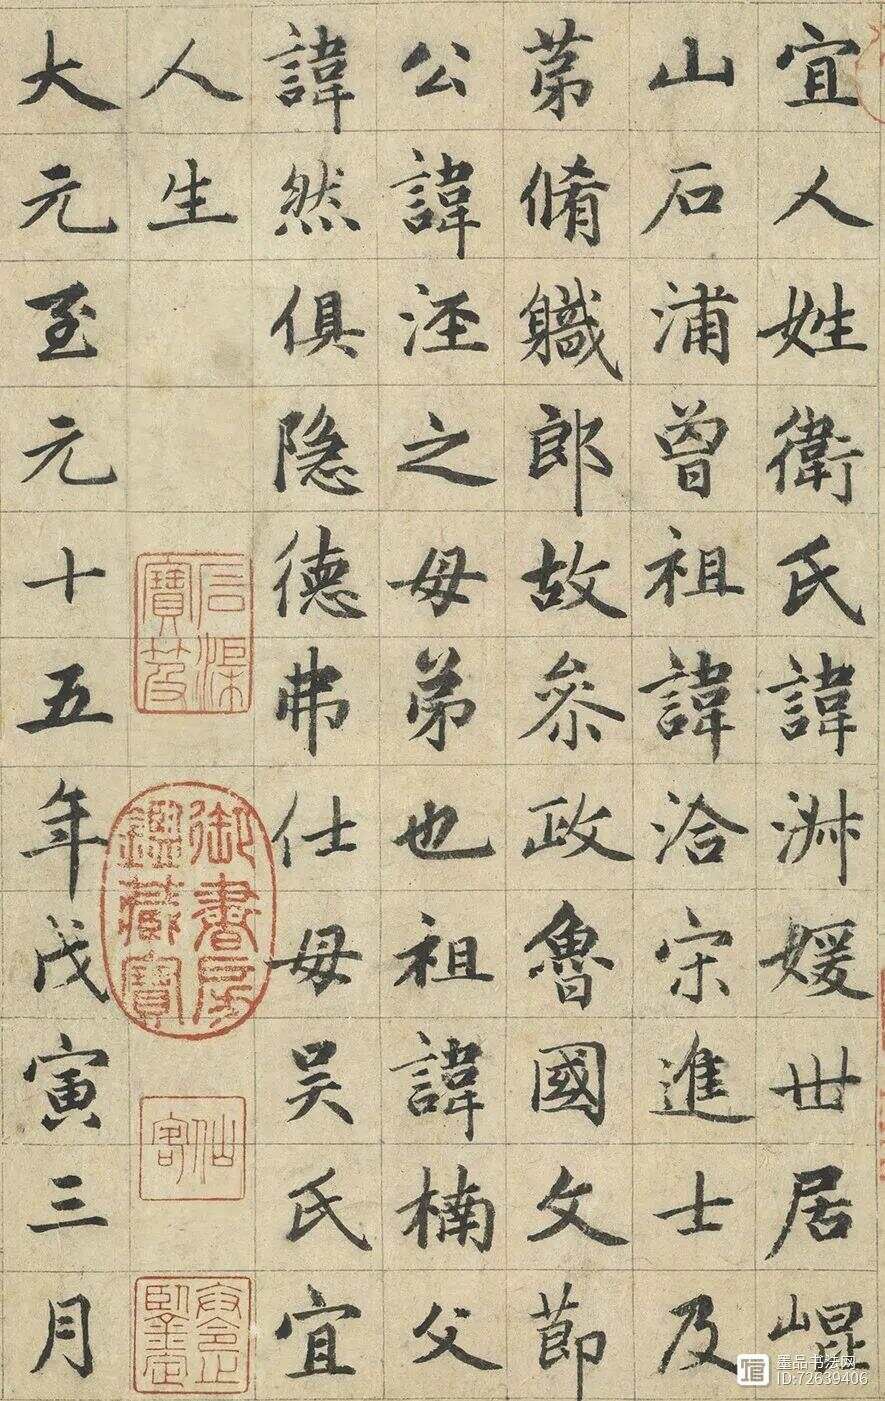 宜人姓衛氏諱淋媛世居崐
山石浦曾祖諱洽宋進士及
苐脩軄郎故叅政魯國文莭
公諱涇之母弟也祖諱楠父
諱然俱隐德弗仕母吴氏宜
人生
大元至元十五年戊寅三月
石渠寶笈
御書房鑑藏寶
仙客
墨品书法网
ID:72639406